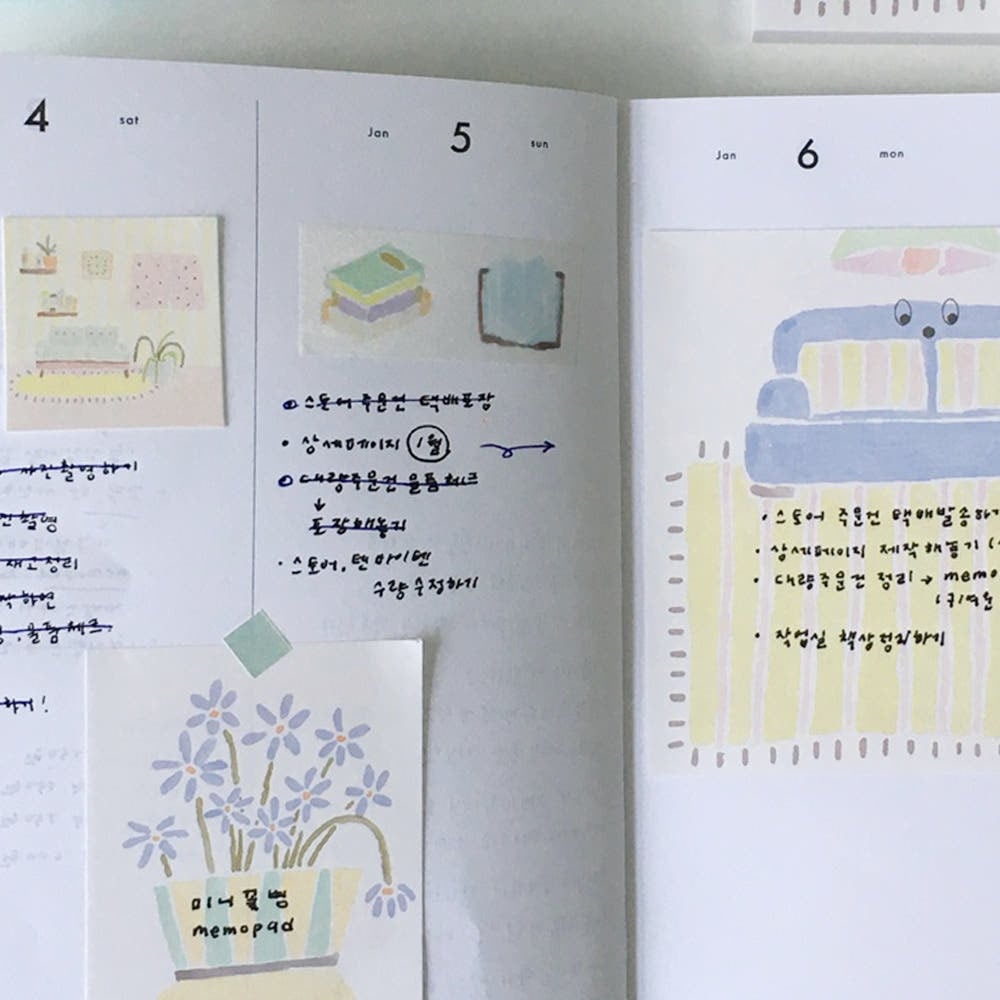 4 sat
사진촬영하기
촬영
재고정리
하면
, 물품체크.
하기!
Jan 5 sun
스토어 주문건 택배포장
· 상세페이지 1월
대량주문건 물품체크
↓
포장해놓기
· 스토어, 텐바이텐
수량수정하기
미니꽃병
memopad
Jan 6 mon
· 스토어 주문건 택배발송하기
· 상세페이지 제작해놓기
· 대량주문건 정리 → memo
· 작업실 책상정리하기